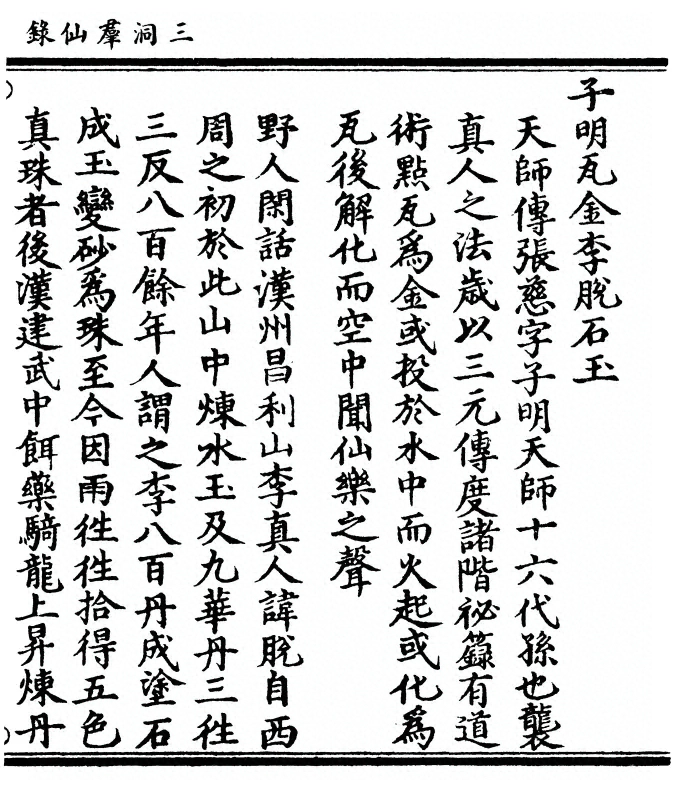 三洞羣仙錄
子明瓦金李脫石玉
天師傳張慈字子明天師十六代孫也襲
真人之法歲以三元傳度諸階祕籙有道
術點瓦爲金或投於水中而火起或化爲
瓦後解化而空中聞仙樂之聲
野人閑話漢州昌利山李真人諱脫自西
周之初於此山中煉水玉及九華丹三徃
三反八百餘年人謂之李八百丹成塗石
成玉變砂爲珠至今因雨徃徃拾得五色
真珠者後漢建武中餌藥騎龍上昇煉丹